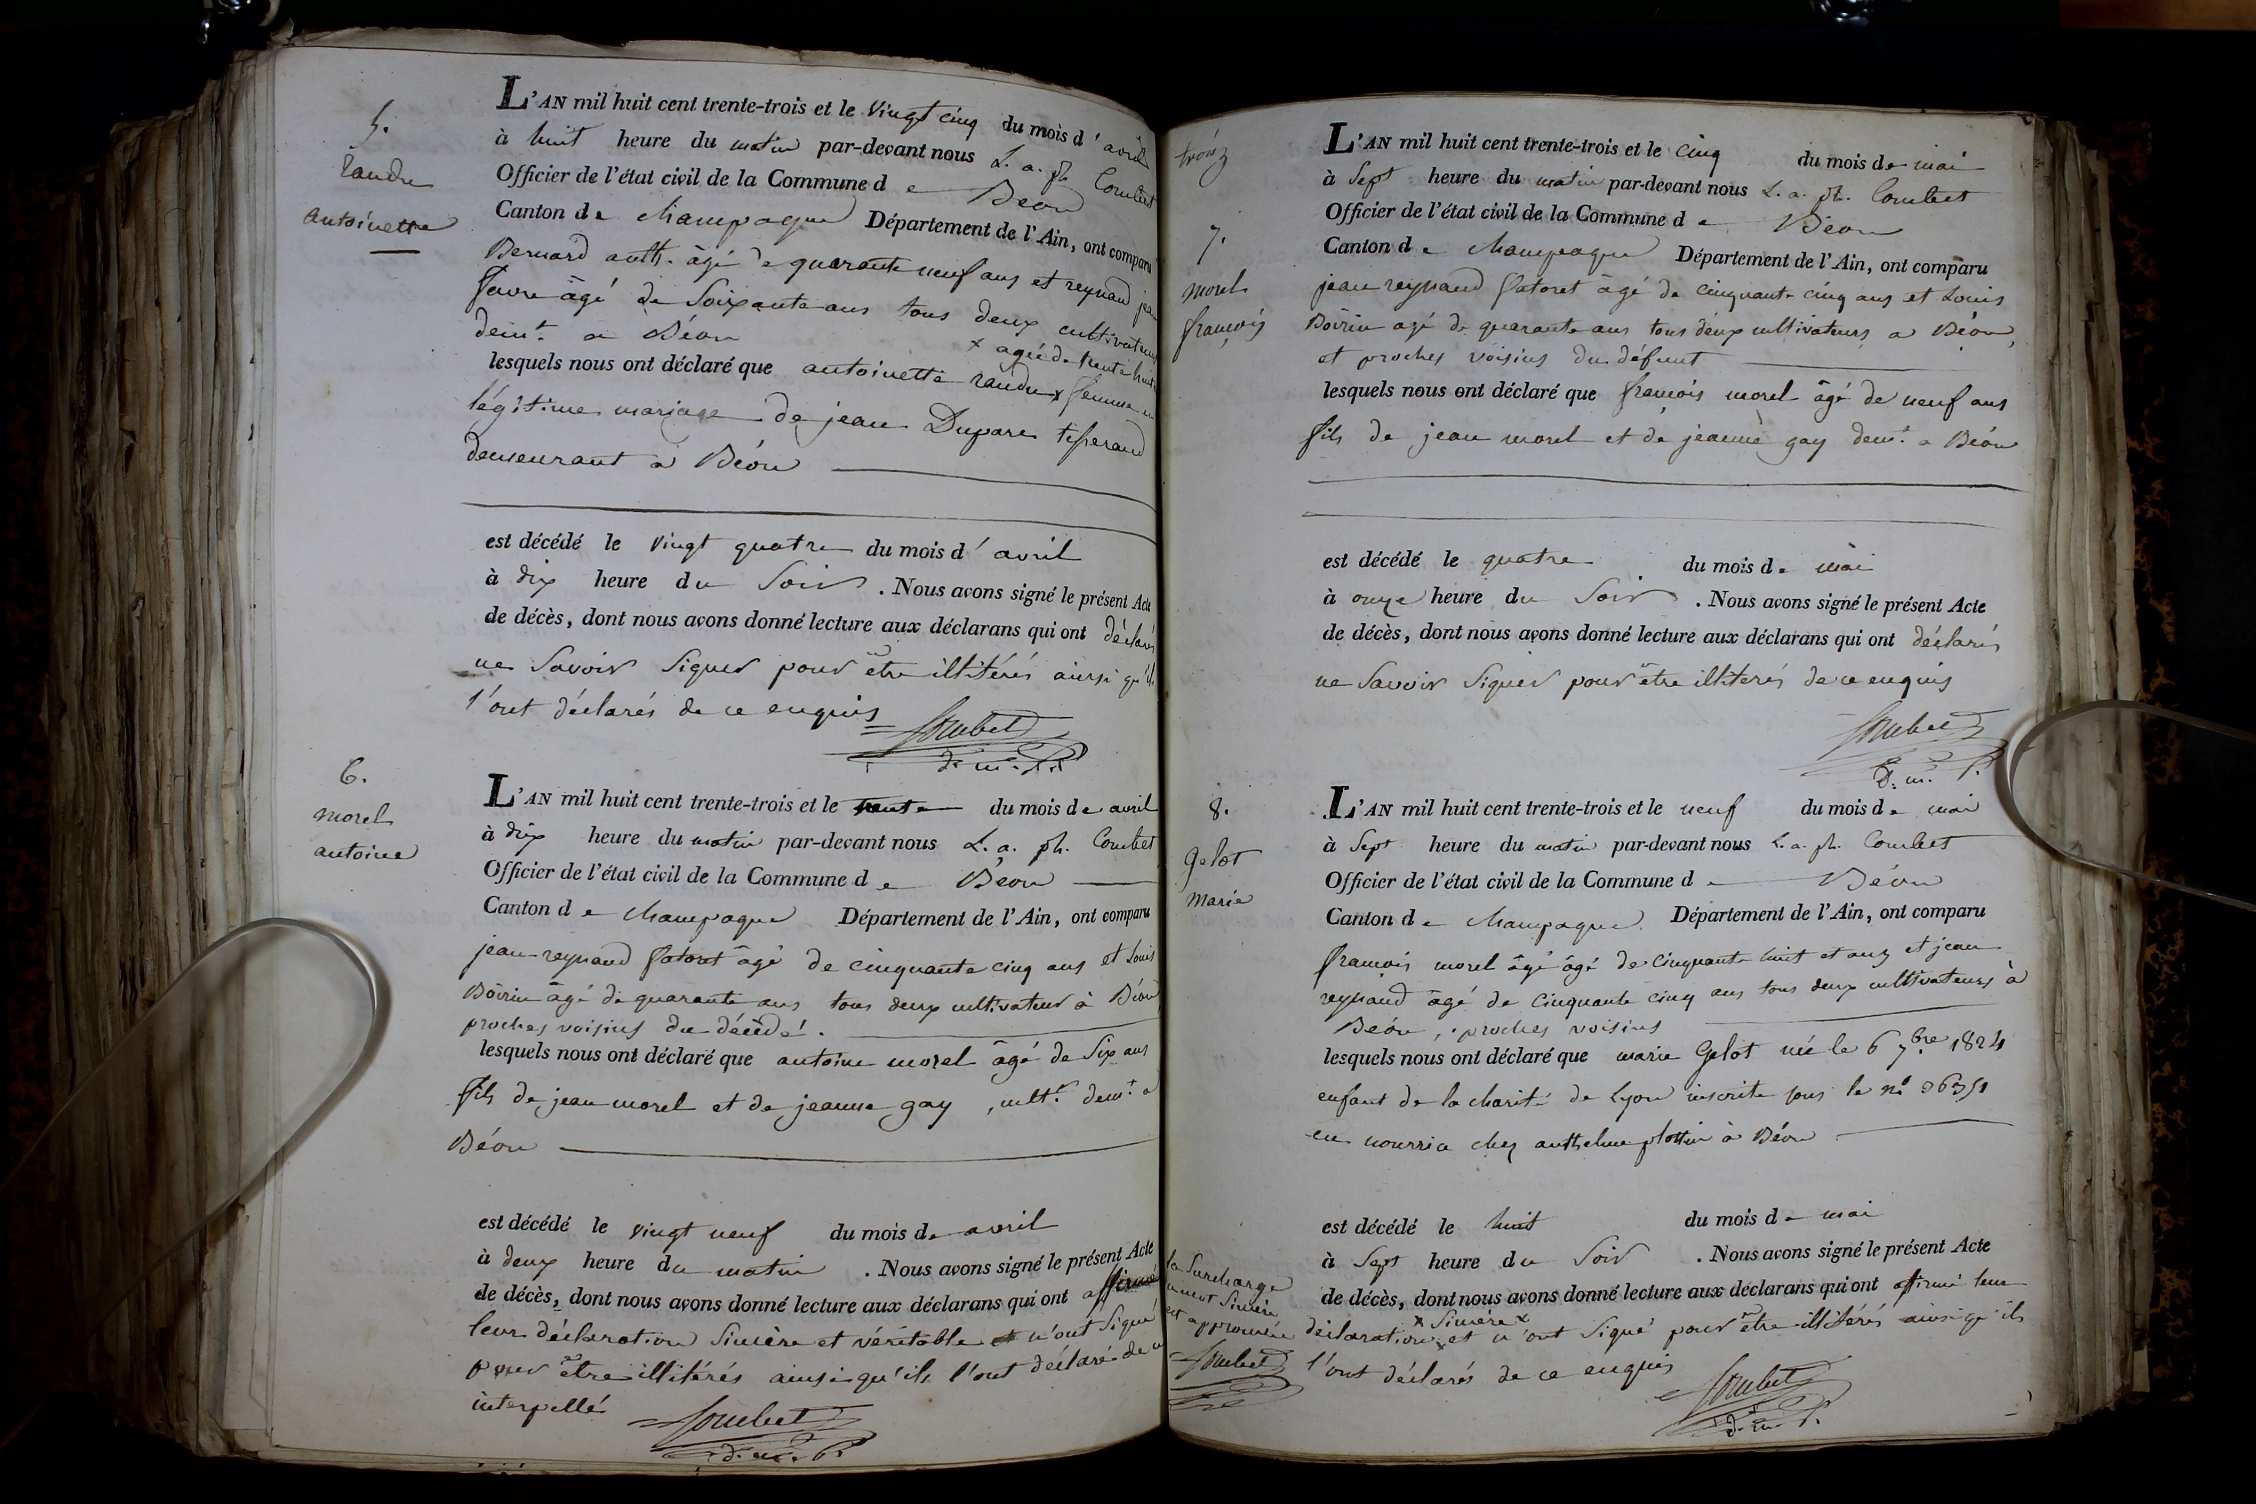 5.
Randu
antoinette
L'AN mil huit cent trente-trois et le vingt cinq du mois d'avril
à huit heure du matin par-devant nous L. a. ph. Combet
Officier de l'état civil de la Commune de Béon
Canton de champagne Département de l'Ain, ont comparu
Bernard anth. âgé de quarante neuf ans et reynaud jean
favre âgé de soixante ans tous deux cultivateurs
demt. a Béon
x agée de trente huit
lesquels nous ont déclaré que antoinette randu x femme en
légitime mariage de jean Dupare tisserand
demeurant a Béon
est décédé le vingt quatre du mois d'avril
à dix heure du soir. Nous avons signé le présent Acte
de décès, dont nous avons donné lecture aux déclarans qui ont déclarés
ne savoir signer pour être illitérés ainsi qu'ils
l'ont déclarés de ce enquis
Combet
d. m. p.
6.
morel
antoine
L'AN mil huit cent trente-trois et le trente du mois de avril
à dix heure du matin par-devant nous L. a. ph. Combet
Officier de l'état civil de la Commune de Béon
Canton de champagne Département de l'Ain, ont comparu
jean reynaud fatoret âgé de cinquante cinq ans et Louis
Boirin âgé de quarante ans tous deux cultivateurs à Béon
proches voisins du décédé.
lesquels nous ont déclaré que antoine morel âgé de six ans
fils de jean morel et de jeanne gay, cultr. demt. a
Béon
est décédé le vingt neuf du mois de avril
à deux heure du matin. Nous avons signé le présent Acte
de décès, dont nous avons donné lecture aux déclarans qui ont affirmé
leur déclaration sincère et véritable et n'ont signé
pour être illitérés ainsi qu'ils l'ont déclaré de ce
interpellé
Combet
d. m. p.
7.
morel
françois
L'AN mil huit cent trente-trois et le cinq du mois de mai
à sept heure du matin par-devant nous L. a. ph. Combet
Officier de l'état civil de la Commune de Béon
Canton de champagne Département de l'Ain, ont comparu
jean reynaud fatoret âgé de cinquante cinq ans et Louis
Boirin agé de quarante ans tous deux cultivateurs a Béon,
et proches voisins du défunt
lesquels nous ont déclaré que françois morel âgé de neuf ans
fils de jean morel et de jeanne gay demt. a Béon
est décédé le quatre du mois de mai
à onze heure du soir. Nous avons signé le présent Acte
de décès, dont nous avons donné lecture aux déclarans qui ont déclarés
ne savoir signer pour être illiterés de ce enquis
Combet
D. m. P.
8.
Gelot
marie
L'AN mil huit cent trente-trois et le neuf du mois de mai
à sept heure du matin par-devant nous L. a. ph. Combet
Officier de l'état civil de la Commune de Béon
Canton de champagne Département de l'Ain, ont comparu
françois morel âgé âgé de cinquante huit et ans et jean
reynaud âgé de cinquante cinq ans tous deux cultivateurs à
Béon, proches voisins
lesquels nous ont déclaré que marie Gelot née le 6 7.bre 1824
enfant de la charité de Lyon inscrite sous le n°
en nourrice chez anthelme plottin à Béon
est décédé le huit du mois de mai
à sept heure du soir. Nous avons signé le présent Acte
de décès, dont nous avons donné lecture aux déclarans qui ont affirmé leur
x sincère x
déclaration x et n'ont signé pour être illitérés ainsi qu'ils
l'ont déclarés de ce enquis
Combet
d. m. P.
la surcharge
du mot sincère
est approuvée
Combet